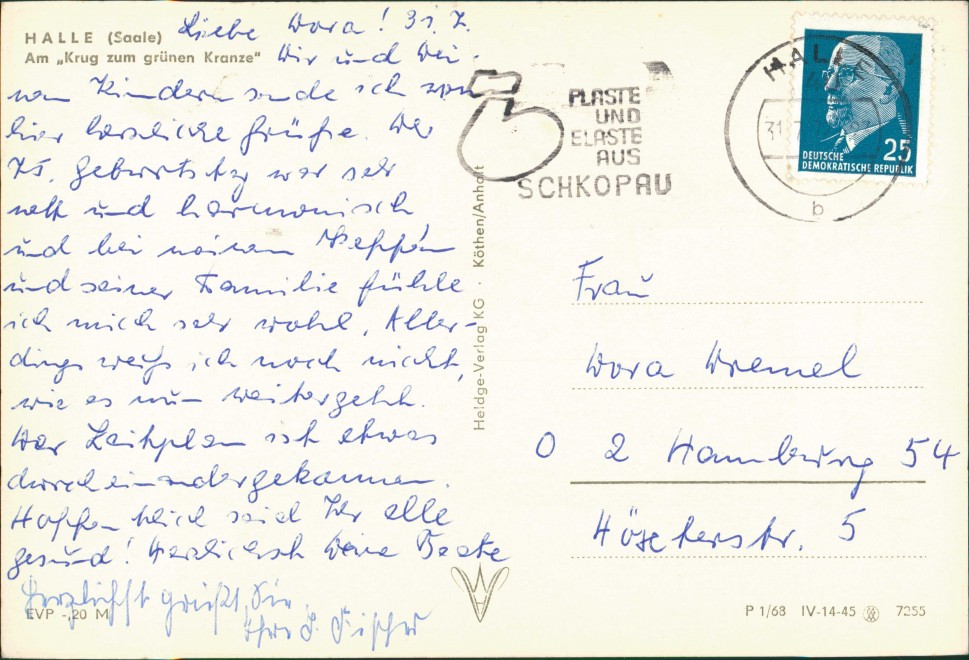 HALLE (Saale)
Am „Krug zum grünen Kranze"
Liebe Dora! 31.7.
Dir und Dei-
nen Kindern sende ich von
hier herzliche Grüße. Der
75. Geburtstag war sehr
nett und harmonisch
und bei meinem Neffen
und seiner Familie fühle
ich mich sehr wohl. Aller-
dings weiß ich noch nicht,
wie es nun weitergeht.
Der Zeitplan ist etwas
durcheinandergekommen.
Hoffentlich seid Ihr alle
gesund! Herzlichst Deine Beate
Herzlichst grüßt Sie
Ihre L. Fischer
EVP -,20 M
Heldge-Verlag KG · Köthen/Anhalt
PLASTE
UND
ELASTE
AUS
SCHKOPAU
HALLE
31.7.
b
25
DEUTSCHE
DEMOKRATISCHE REPUBLIK
Frau
Dora Dremel
2 Hamburg 54
Höxterstr. 5
P 1/68 IV-14-45 7255